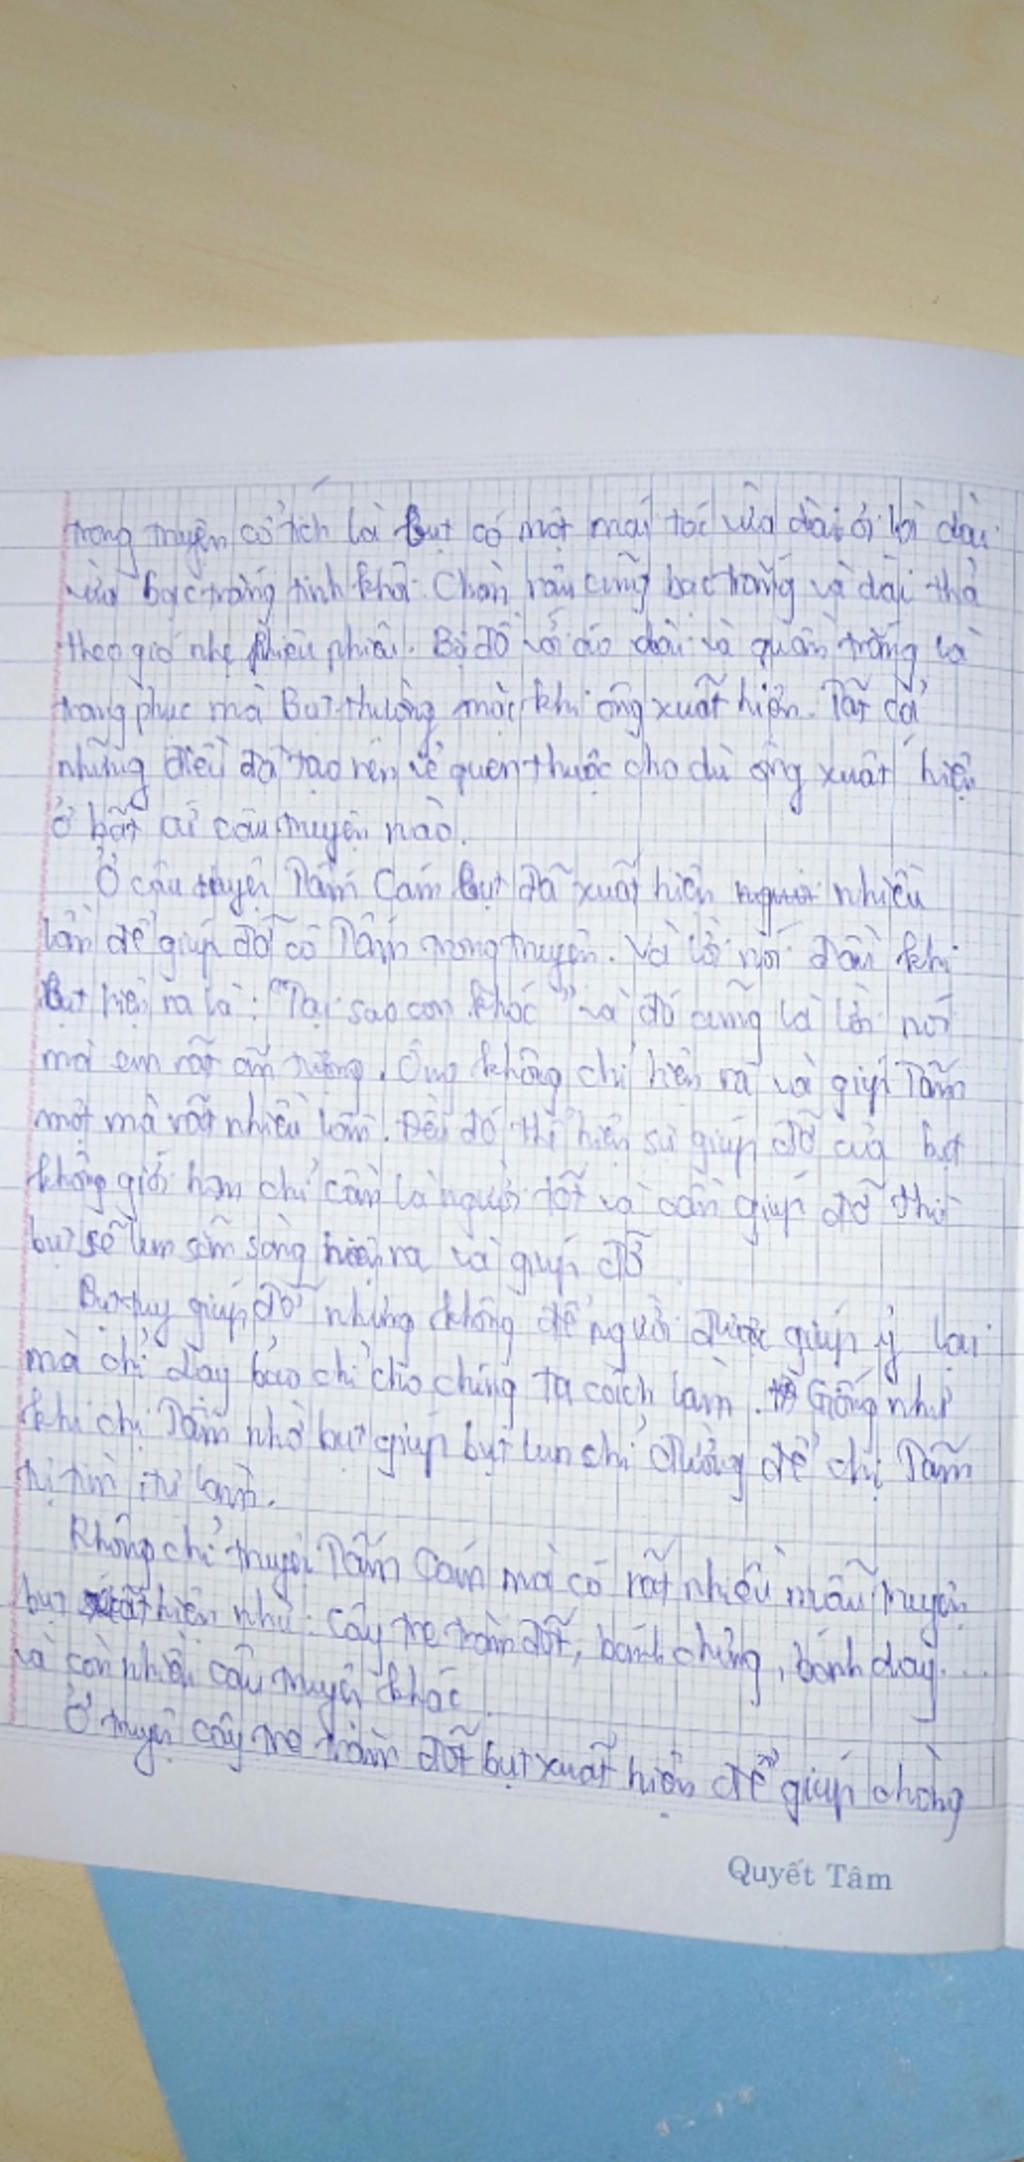 trong truyện cổ tích là Bụt có một mái tóc vừa dài ơi là dài
vừa bạc trắng tinh khôi. Chòm râu cũng bạc trắng và dài thả
theo gió nhẹ phiêu phiêu. Bộ đồ với áo dài và quần trắng là
trang phục mà Bụt thường mặc khi ông xuất hiện. Tất cả
những điều đó tạo nên vẻ quen thuộc cho dù ông xuất hiện
ở bất cứ câu truyện nào.
Ở câu truyện Tấm Cám Bụt đã xuất hiện nhiều
lần để giúp đỡ cô Tấm trong truyện. Và lời nói đầu khi
Bụt hiện ra là: "Tại sao con khóc" và đó cũng là lời nói
mà em rất ấn tượng. Ông không chỉ hiện ra và giúp Tấm
một mà rất nhiều lần. Điều đó thể hiện sự giúp đỡ của bụt
không giới hạn chỉ cần là người tốt và cần giúp đỡ thì
bụt sẽ luôn sẵn sàng hiện ra và giúp đỡ
Bụt tuy giúp đỡ nhưng không để người được giúp ỷ lại
mà chỉ dạy bảo chỉ cho chúng ta cách làm. Giống như
khi chị Tấm nhờ bụt giúp bụt luôn chỉ đường để chị Tấm
tự tìm tự làm.
Không chỉ truyện Tấm Cám mà có rất nhiều mẫu truyện
bụt xuất hiện như: cây tre trăm đốt, bánh chưng, bánh dày...
và còn nhiều câu truyện khác
Ở truyện cây tre trăm đốt bụt xuất hiện để giúp chàng
Quyết Tâm